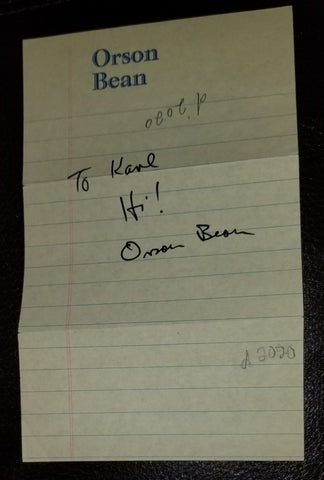 Orson
Bean
To Karl
Hi!
Orson Bean
d 2020